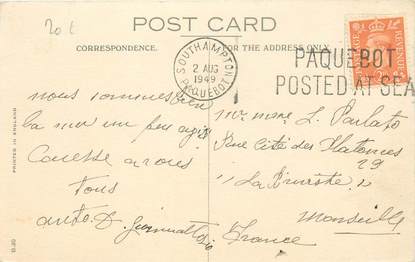 20 €
POST CARD
CORRESPONDENCE.
FOR THE ADDRESS ONLY.
SOUTHAMPTON
2 AUG
1949
PAQUEBOT
PAQUEBOT
POSTED AT SEA
REVENUE
nous sommes bien
la mer un peu agitée
Caresse a vous
Tous
PRINTED IN ENGLAND
Mr mme L. Parlato
Rue Cité des Platanes
29
"La
Marseille
France